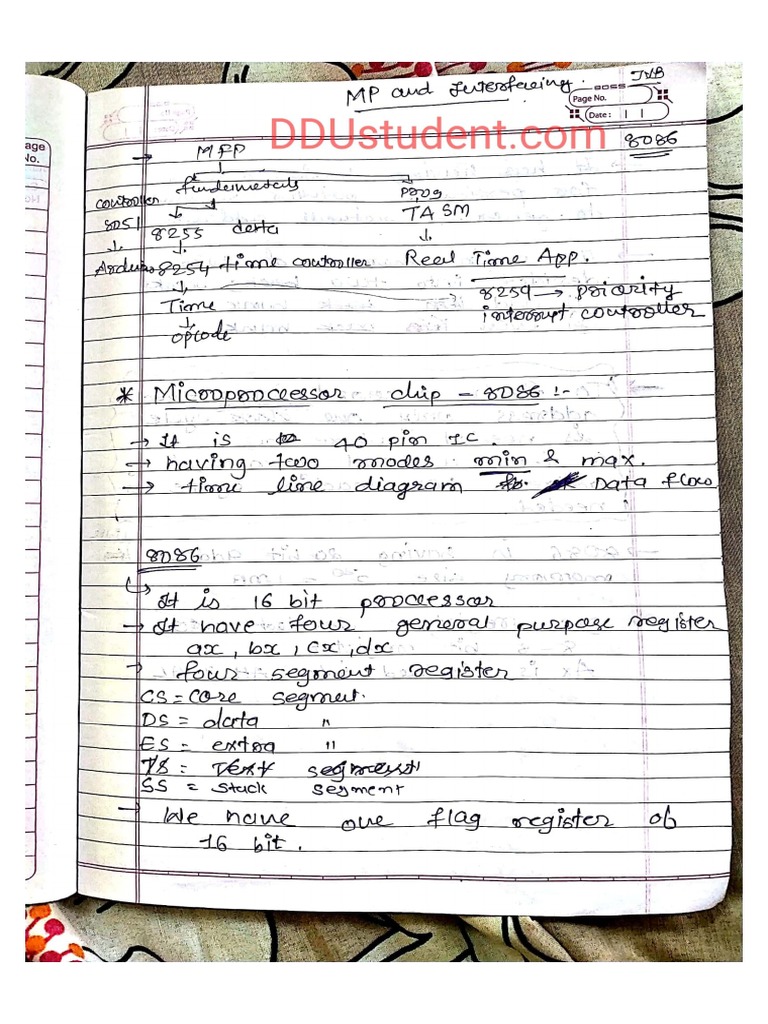 JVB
MP and Interfacing.
Page No.
Date:
DDUstudent.com
8086
→ MFP
fundemetals prog
controller
8051 8255 deta TASM
Arduino 8254 time controller Real Time App.
8259 → priority
Time interrupt controller
opcode
* Microproccessor chip - 8086 :-
→ It is 40 pin IC.
→ having two modes min & max.
→ time line diagram Data flow
8086
It is 16 bit proccessor
→ It have four general purpose register
ax, bx, cx, dx
→ four segment register
CS = core segment.
DS = data "
ES = extra "
TS = Text segment
SS = stack segment
→ We have one flag register of
16 bit.
age
No.